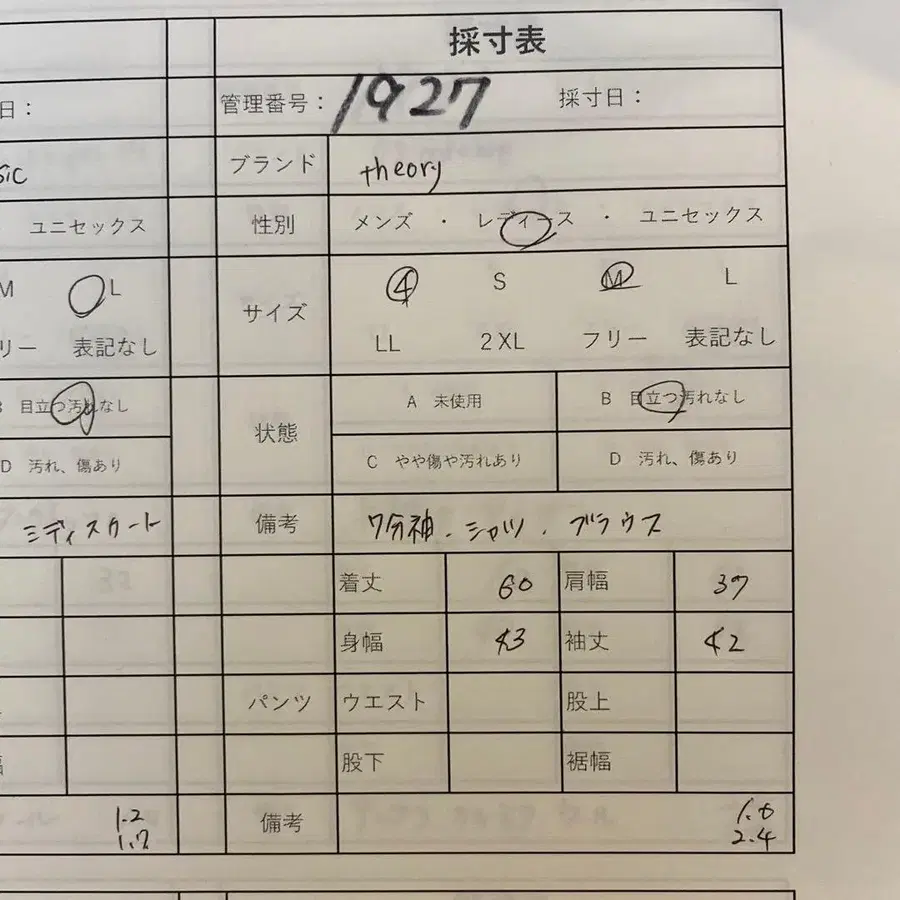 採寸表
日：
管理番号：1927 採寸日：
sic
ブランド theory
ユニセックス
性別 メンズ ・ レディース ・ ユニセックス
M L
サイズ 4 S M L
リー 表記なし
LL 2XL フリー 表記なし
目立つ汚れなし
状態 A 未使用 B 目立つ汚れなし
D 汚れ、傷あり
C やや傷や汚れあり D 汚れ、傷あり
ミディスカート
備考 7分袖・シャツ・ブラウス
着丈 60 肩幅 37
身幅 43 袖丈 42
パンツ ウエスト 股上
幅
股下 裾幅
1.2
1.7
備考 1.6
2.4